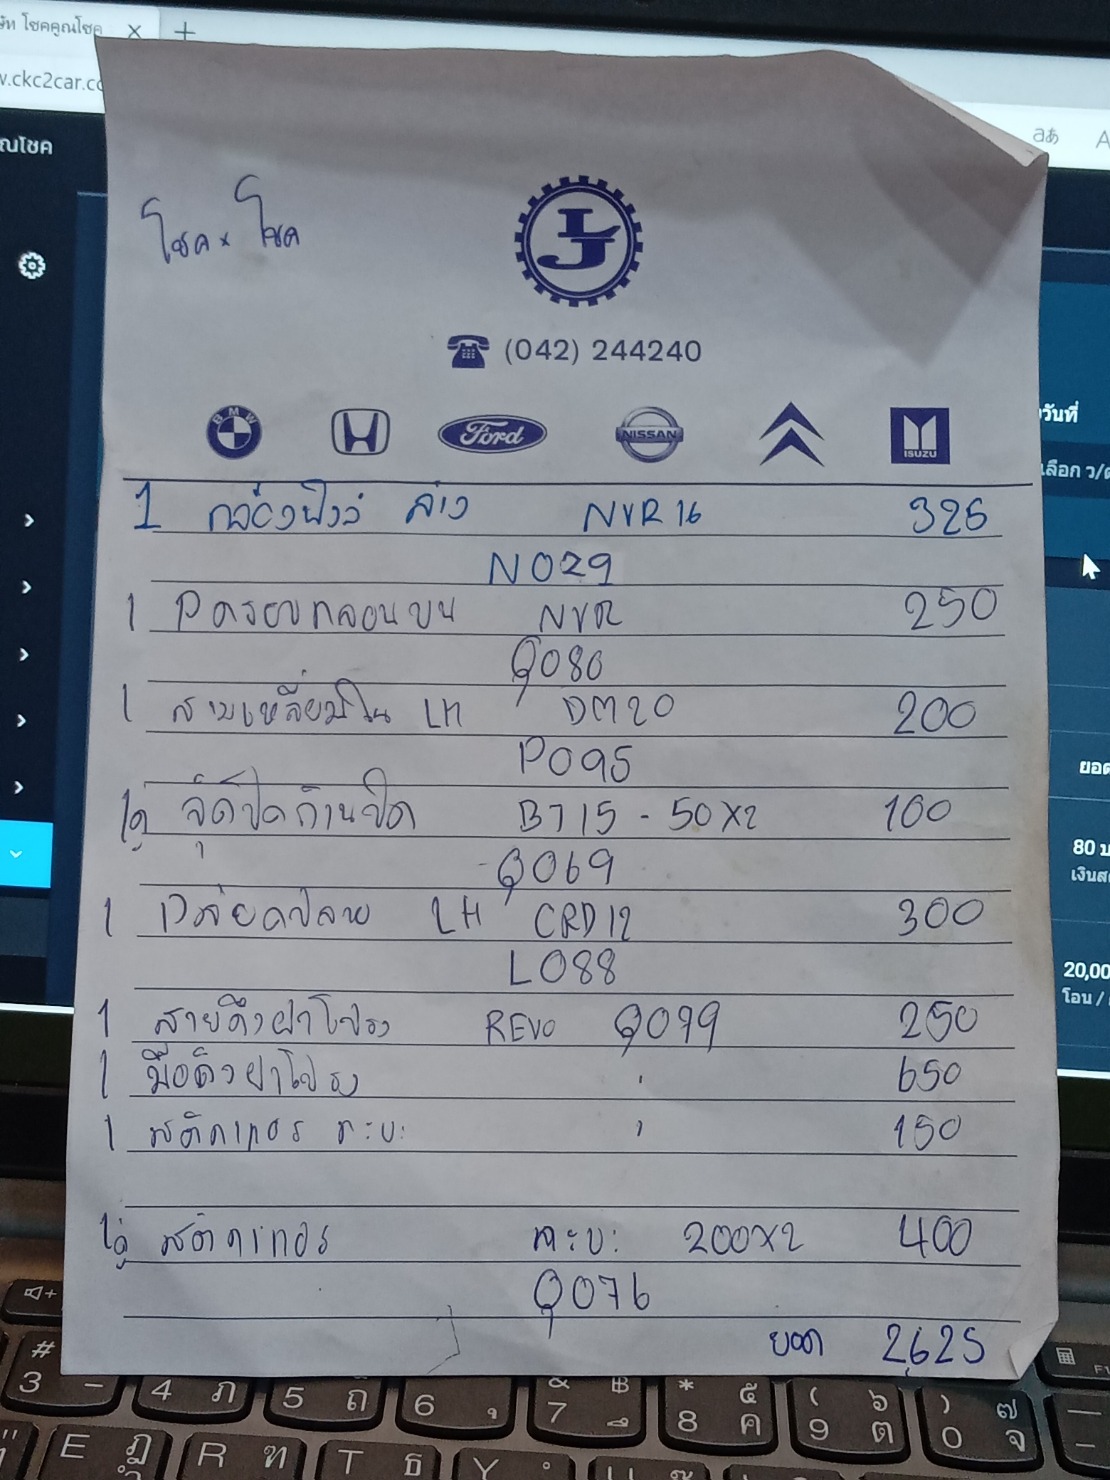 โชคคูณโชค
ckc2car.co
โชค x โชค
LJ
(042) 244240
BMW
Ford
NISSAN
ISUZU
วันที่
1 กล่องฟิวส์ ล่าง NVR 16 325
N029
1 ฝาครอบกลอนบน NVR 250
Q080
1 สามเหลี่ยมใน LH DM20 200
P095
1คู่ จุ๊ดปิดก้านปัด BT15 - 50X2 100
Q069
1 LH CRD12 300
L088
1 สายดึงฝาโปรง REVO Q099 250
1 มือดึงฝาโปรง " 650
1 สติกเกอร กะบะ " 150
1คู่ สติกเกอร กะบะ 200X2 400
Q076
ยอด 2625
80 บ
20,00
โอน /
# 3 - 4 ภ 5 ถ 6 ุ & 7 ึ * 8 ค ๕ ( 9 ต ๖ ) 0 จ ๗
E ฎ R ฑ T ธ Y